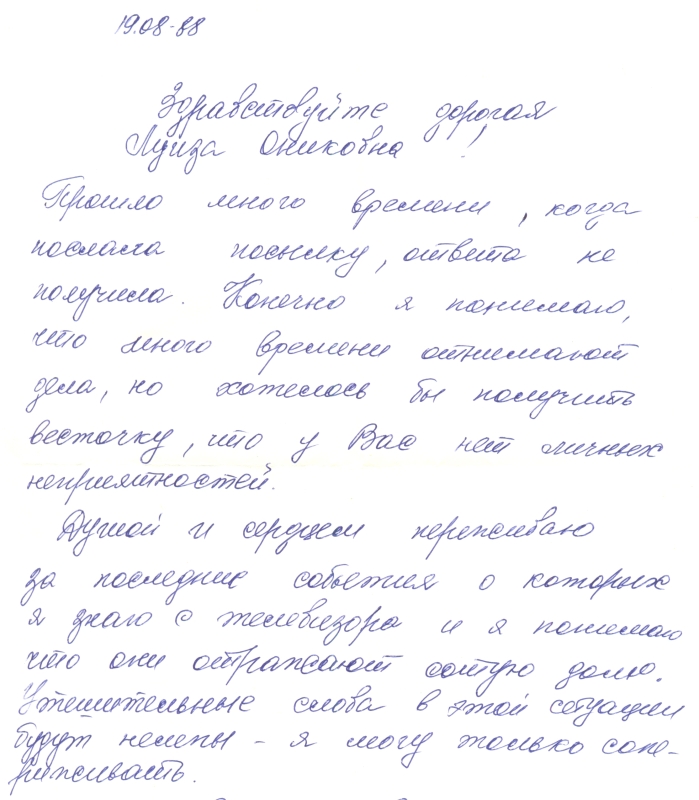 19.08-88
Здравствуйте дорогая
Луиза Ониковна !
Прошло много времени, когда
послала посылку, ответа не
получила. Конечно я понимаю,
что много времени отнимают
дела, но хотелось бы получить
весточку, что у Вас нет личных
неприятностей.
Душой и сердцем переживаю
за последние события о которых
я знаю с телевизора и я понимаю
что они отражают сотую долю.
Утешительные слова в этой ситуации
будут нелепы - я могу только сопе-
реживать.